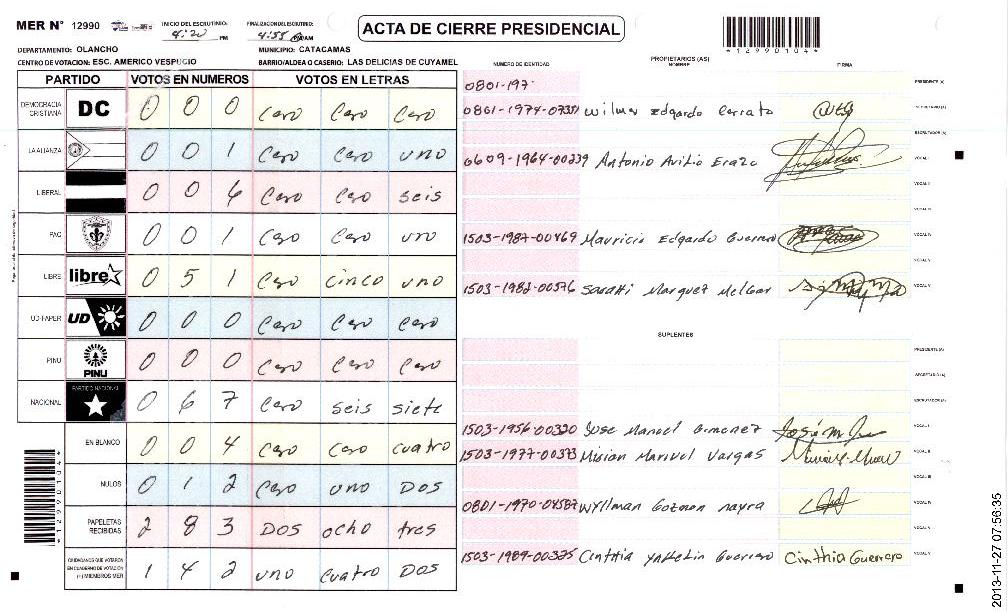 MER N° 12990
INICIO DEL ESCRUTINIO: 4:20 PM
FINALIZACION DEL ESCRUTINIO: 4:55 PM AM
ACTA DE CIERRE PRESIDENCIAL
*12990104*
DEPARTAMENTO: OLANCHO
MUNICIPIO: CATACAMAS
CENTRO DE VOTACION: ESC. AMERICO VESPUCIO
BARRIO/ALDEA O CASERIO: LAS DELICIAS DE CUYAMEL
PARTIDO VOTOS EN NUMEROS VOTOS EN LETRAS
DEMOCRACIA CRISTIANA DC 0 0 0 Cero Cero Cero
LA ALIANZA 0 0 1 Cero Cero uno
LIBERAL 0 0 6 Cero Cero seis
PAC 0 0 1 Cero Cero uno
LIBRE libre 0 5 1 Cero cinco uno
UD-FAPER UD 0 0 0 Cero Cero Cero
PINU PINU 0 0 0 Cero Cero Cero
NACIONAL PARTIDO NACIONAL 0 6 7 Cero seis siete
EN BLANCO 0 0 4 Cero Cero cuatro
NULOS 0 1 2 Cero uno Dos
PAPELETAS RECIBIDAS 2 8 3 Dos ocho tres
CIUDADANOS QUE VOTARON EN CUADERNO DE VOTACION (+) MIEMBROS MER 1 4 2 uno cuatro Dos
*12990104*
NUMERO DE IDENTIDAD
PROPIETARIOS (AS)
NOMBRE
FIRMA
0801-197
PRESIDENTE (A)
Wilmer Edgardo Cerrato
SECRETARIO (A)
ESCRUTADOR (A)
0609-1964-00239 Antonio Avilio Erazo
VOCAL I
VOCAL II
VOCAL III
1503-1987-00469 Mauricio Edgardo Guerrero
VOCAL IV
VOCAL V
1503-1982-00576 Marquez Melgar
VOCAL V
SUPLENTES
PRESIDENTE (A)
SECRETARIO (A)
ESCRUTADOR (A)
1503-1956-00320 Jose Manuel Gimenez
VOCAL I
1503-1977-00373 Mirian Marivel Vargas
VOCAL II
0801-1970-04587 Wyllman Guzman
VOCAL III
VOCAL IV
1503-1989-00325 Cinthia Guerrero Cinthia Guerrero
VOCAL V
2013-11-27 07:56:35